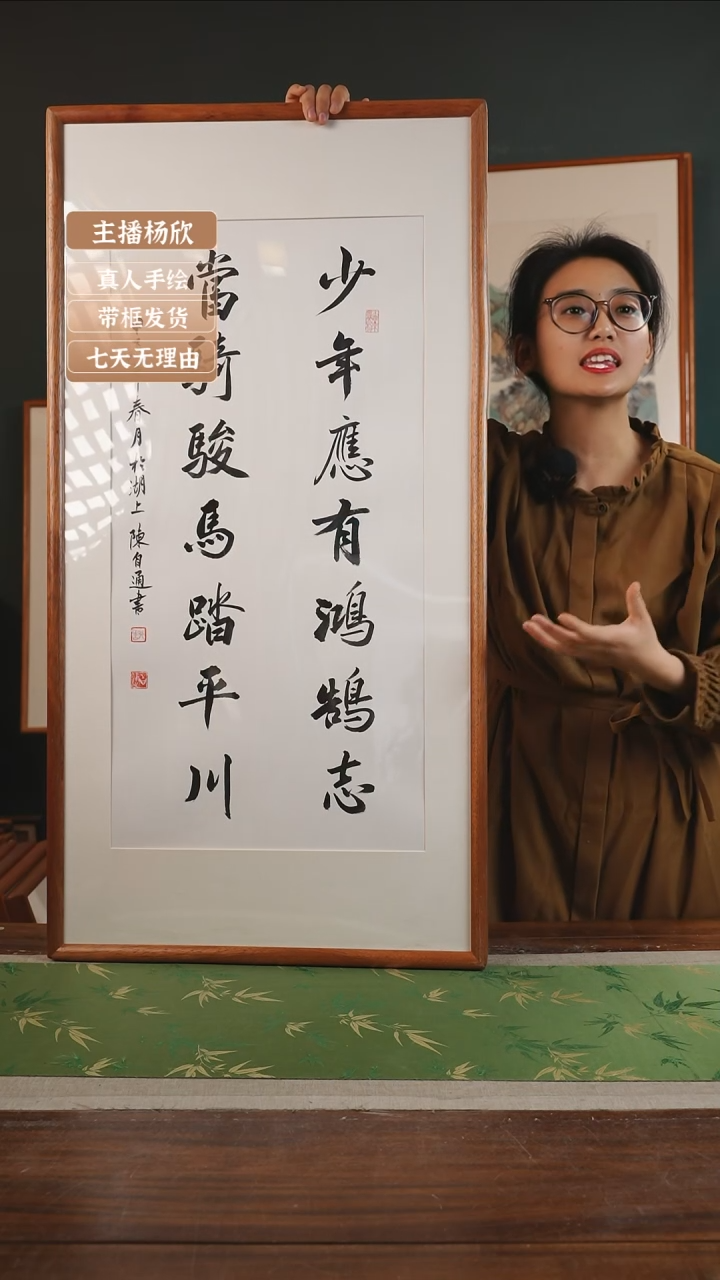 主播杨欣
真人手绘
带框发货
七天无理由
少年應有鴻鵠志
當騎駿馬踏平川
春月於湖上 陳自通書